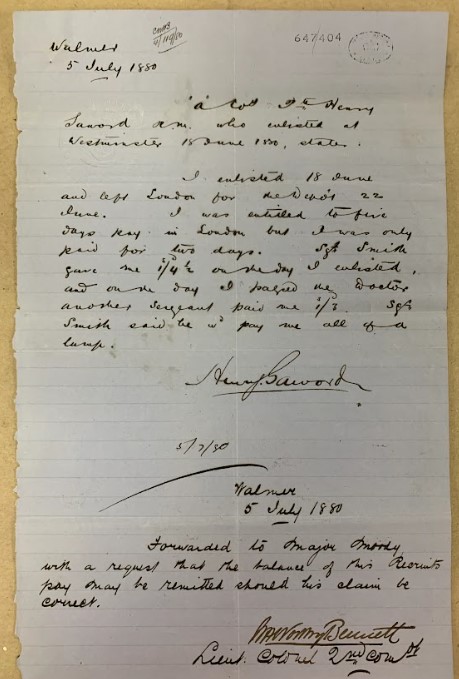 647404
Walmer
5 July 1880
"A" Coy Pte Henry
Saword R.M. who enlisted at
Westminster 18 June 1880, states.
I enlisted 18 June
and left London for the Depôt 22
June. I was entitled to five
days pay in London but I was only
paid for two days. Sgt Smith
gave me 1/4½ on the day I enlisted,
and on the day I passed the Doctor
another Sergeant paid me 1/3. Sgt
Smith said he wd pay me all of a
lump.
Henry Saword
5/7/80
Walmer
5 July 1880
Forwarded to Major Moody
with a request that the balance of this Recruits
pay may be remitted should his claim be
correct.
Bennett
Lieut. Colonel 2nd Comdt